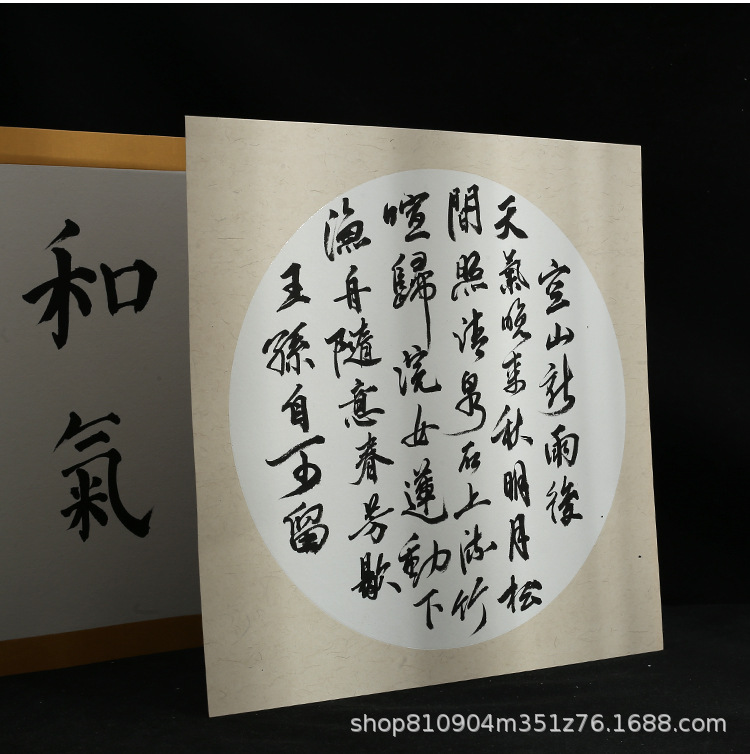 空山新雨後
天氣晚來秋明月松
間照清泉石上流竹
喧歸浣女蓮動下
漁舟隨意春芳歇
王孫自可留
和氣
shop810904m351z76.1688.com